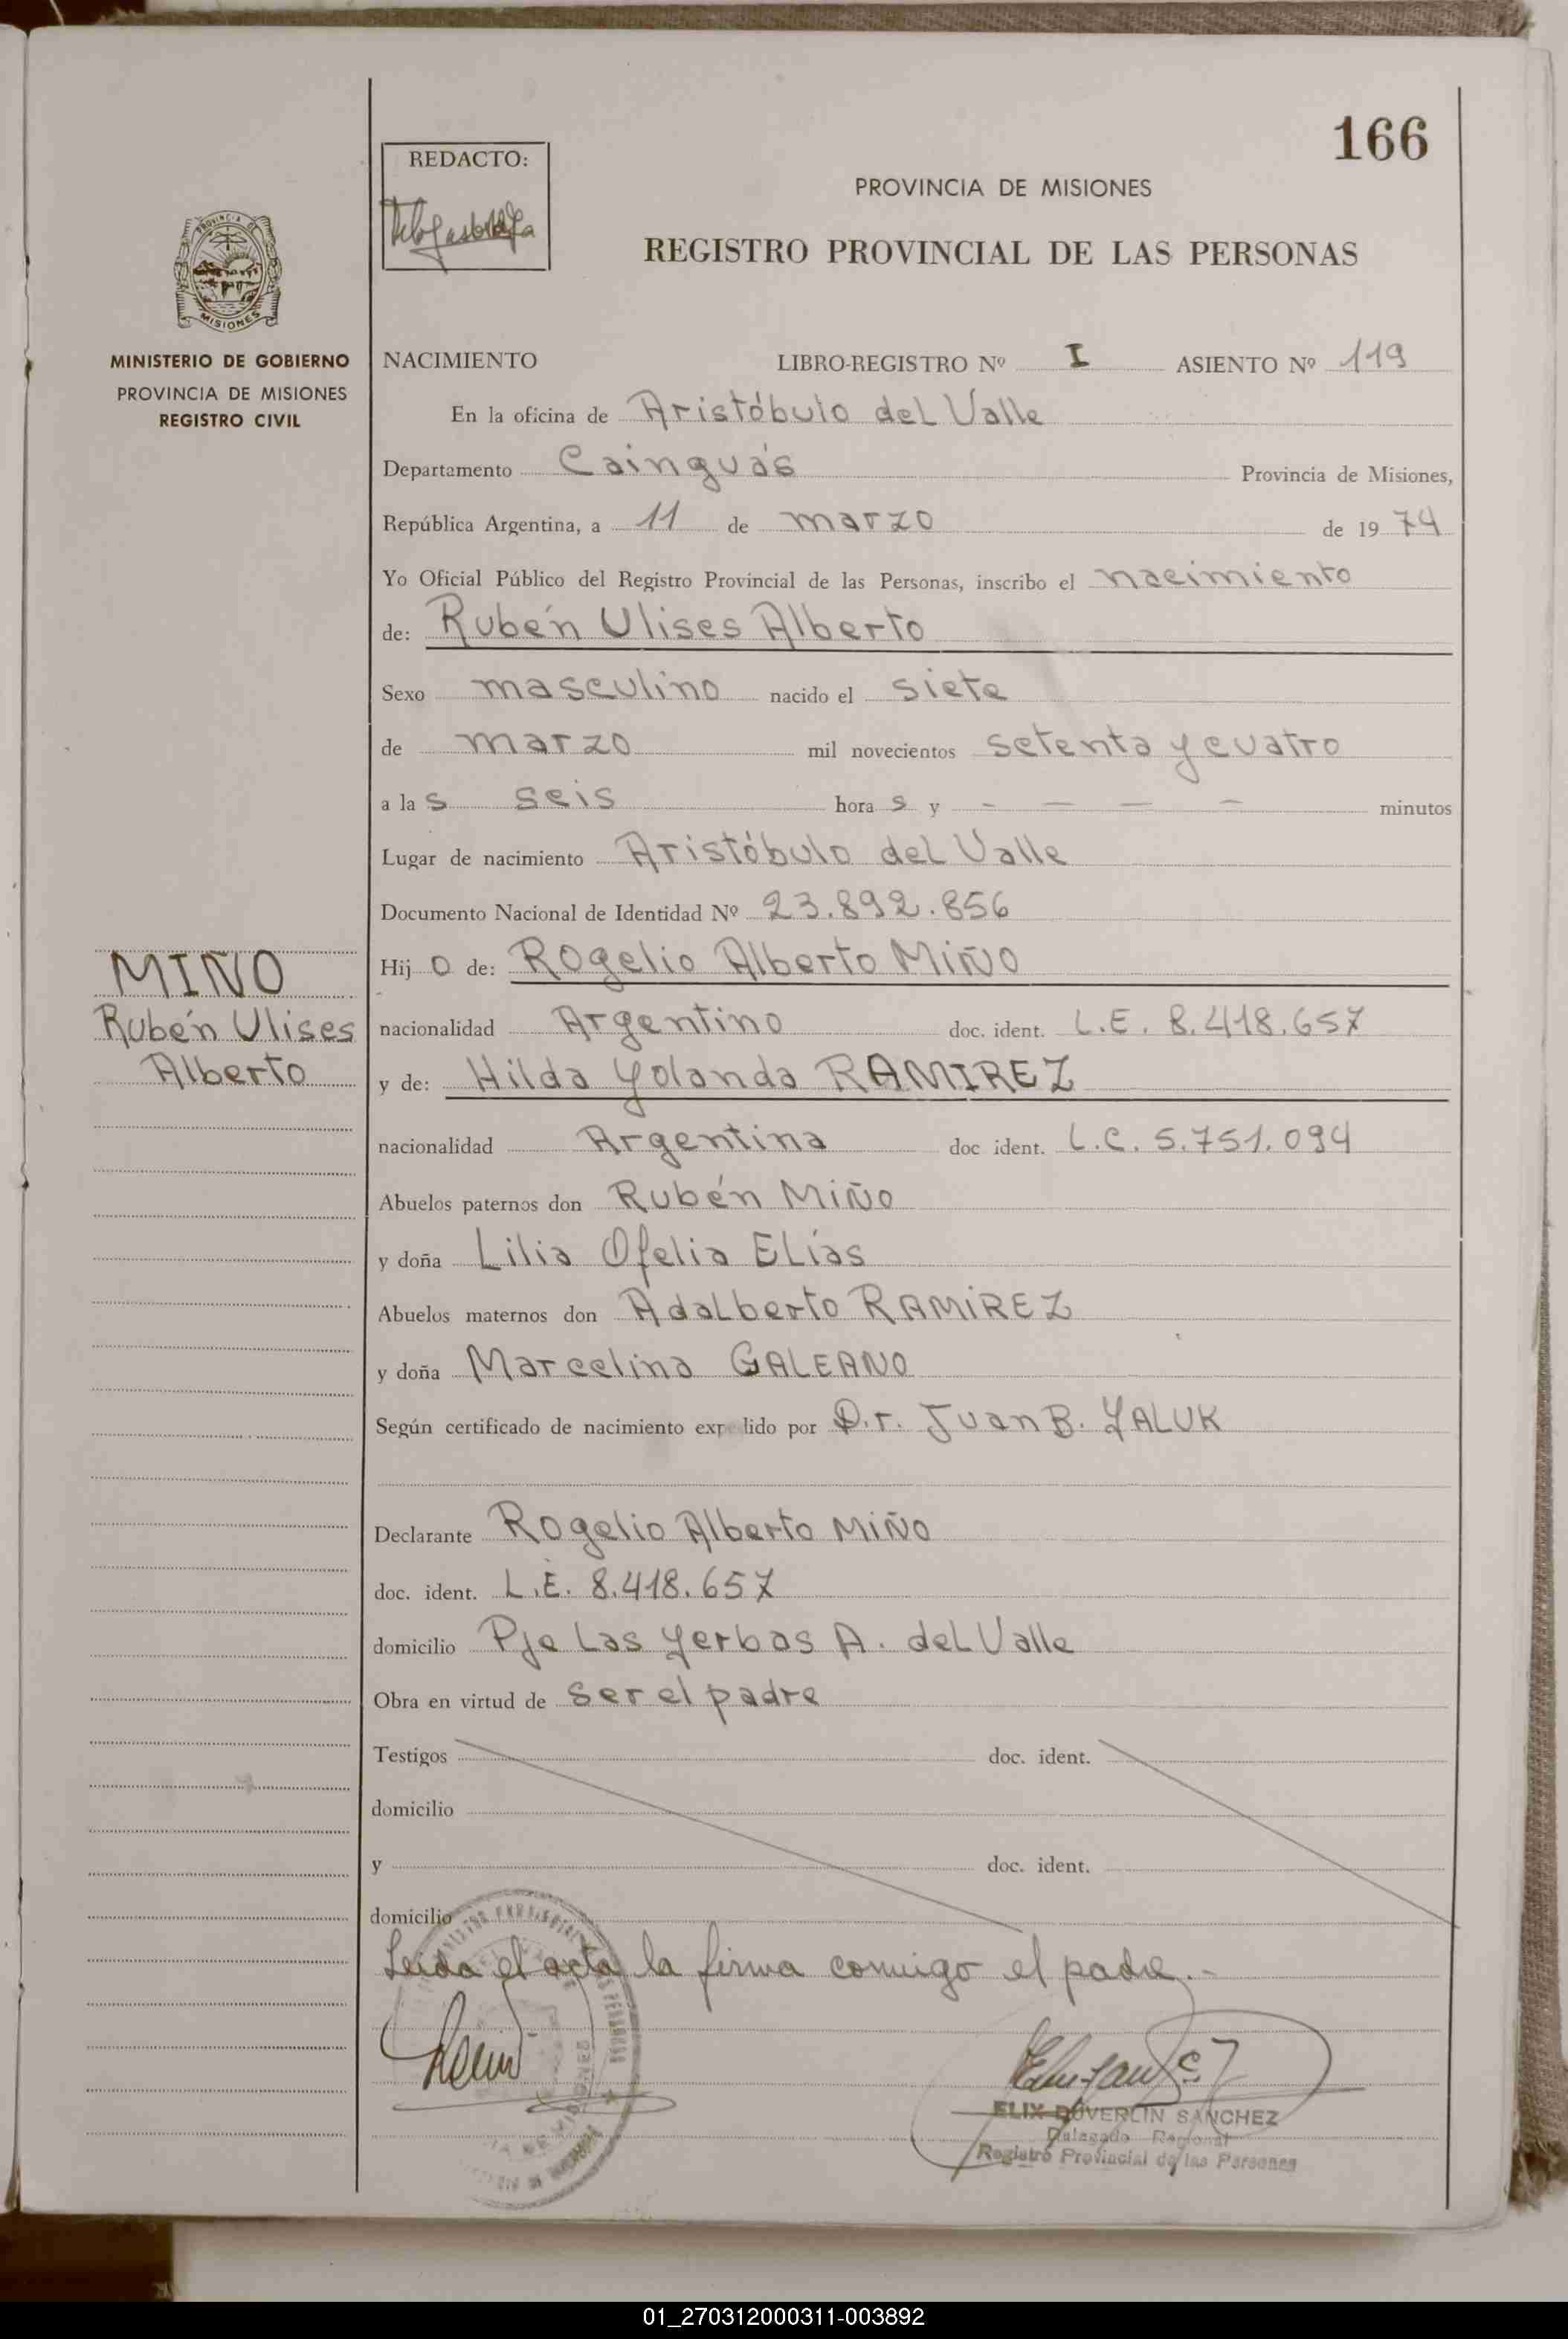 166
REDACTO:
PROVINCIA DE MISIONES
REGISTRO PROVINCIAL DE LAS PERSONAS
PROVINCIA DE
MISIONES
MINISTERIO DE GOBIERNO
PROVINCIA DE MISIONES
REGISTRO CIVIL
NACIMIENTO LIBRO-REGISTRO Nº I ASIENTO Nº 119
En la oficina de Aristóbulo del Valle
Departamento Cainguás Provincia de Misiones,
República Argentina, a 11 de marzo de 1974
Yo Oficial Público del Registro Provincial de las Personas, inscribo el nacimiento
de: Rubén Ulises Alberto
Sexo masculino nacido el siete
de marzo mil novecientos setenta y cuatro
a las seis horas y - — — — minutos
Lugar de nacimiento Aristóbulo del Valle
Documento Nacional de Identidad Nº 23.892.856
MIÑO
Rubén Ulises
Alberto
Hijo de: Rogelio Alberto MIÑO
nacionalidad Argentino doc. ident. L.E. 8.418.657
y de: Hilda Yolanda RAMIREZ
nacionalidad Argentina doc ident. L.C. 5.751.094
Abuelos paternos don Rubén MIÑO
y doña Lilia Ofelia ELías
Abuelos maternos don Adalberto RAMIREZ
y doña Marcelina GALEANO
Según certificado de nacimiento expedido por D.r. Juan B. YALUK
Declarante Rogelio Alberto MIÑO
doc. ident. L.E. 8.418.657
domicilio Pje Las Yerbas A. del Valle
Obra en virtud de ser el padre
Testigos doc. ident.
domicilio
y doc. ident.
domicilio
Leida el acta la firma conmigo el padre.-
ELIX DUVERLIN SANCHEZ
Delegado Regional
Registro Provincial de las Personas
01_270312000311-003892